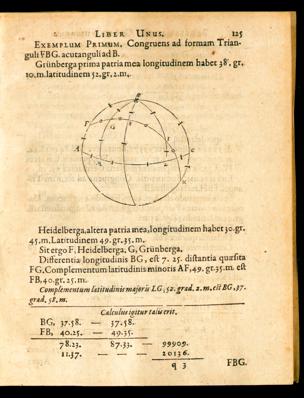 LIBER UNUS. 125
EXEMPLUM PRIMUM, Congruens ad formam Trian-
guli FBG. acutanguli ad B.
Grünberga prima patria mea longitudinem habet 38. gr.
10. m. latitudinem 52. gr, 2. m.
Heidelberga, altera patria mea, longitudinem habet 30. gr.
45. m. Latitudinem 49. gr. 35. m.
Sit ergo F, Heidelberga, G, Grünberga.
Differentia longitudinis BG, est 7. 25. distantia quæsita
FG, Complementum latitudinis minoris AF, 49. gr. 35. m. est
FB, 40. gr. 25. m.
Complementum latitudinis majoris LG, 52. grad. 2. m. est BG, 37.
grad. 58. m.
Calculus igitur talis erit.
BG, 37.58. — 37.58.
FB, 40.25. — 49.35.
78.23. 87.33. — 99909.
11.37. — — 20136.
q 3 FBG.